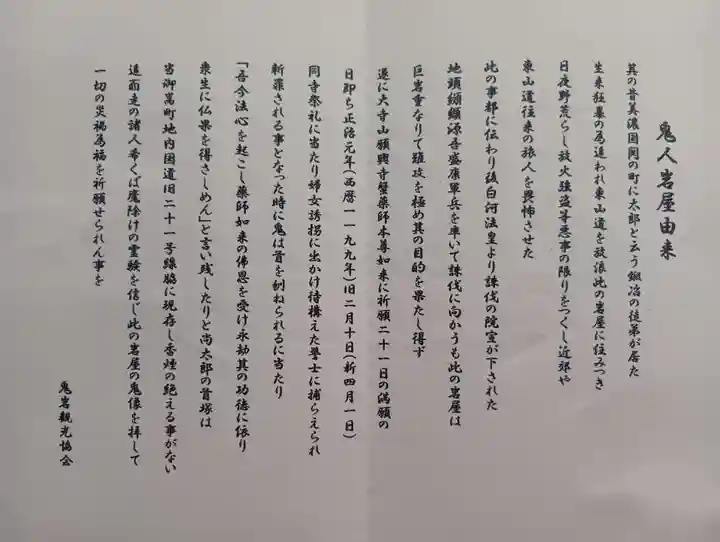 鬼人岩屋由来
其の昔美濃国関の町に太郎と云う鍛冶の徒弟が居た
生来狂暴の為追われ東山道を放浪此の岩屋に住みつき
日夜野荒らし放火強盗等悪事の限りをつくし近郊や
東山道往来の旅人を畏怖させた
此の事都に伝わり後白河法皇より誅伐の院宣が下された
地頭纐纈源吾盛康軍兵を率いて誅伐に向かうも此の岩屋は
巨岩重なりて難攻を極め其の目的を果たし得ず
遂に大寺山願興寺蟹薬師本尊如来に祈願二十一日の満願の
日即ち正治元年(西暦一一九九年)旧二月十日(新四月一日)
同寺祭礼に当たり婦女誘拐に出かけ待構えた軍士に捕らえられ
斬罪される事となった時に鬼は首を刎ねられるに当たり
「吾今法心を起こし薬師如来の佛恩を受け永劫其の功徳に依り
衆生に仏果を得さしめん」と言い残したりと尚太郎の首塚は
当御嵩町地内国道旧二十一号線脇に現存し香煙の絶える事がない
道而走の諸人希くば魔除けの霊験を信じ此の岩屋の鬼像を拝して
一切の災禍為福を祈願せられん事を
鬼岩観光協会